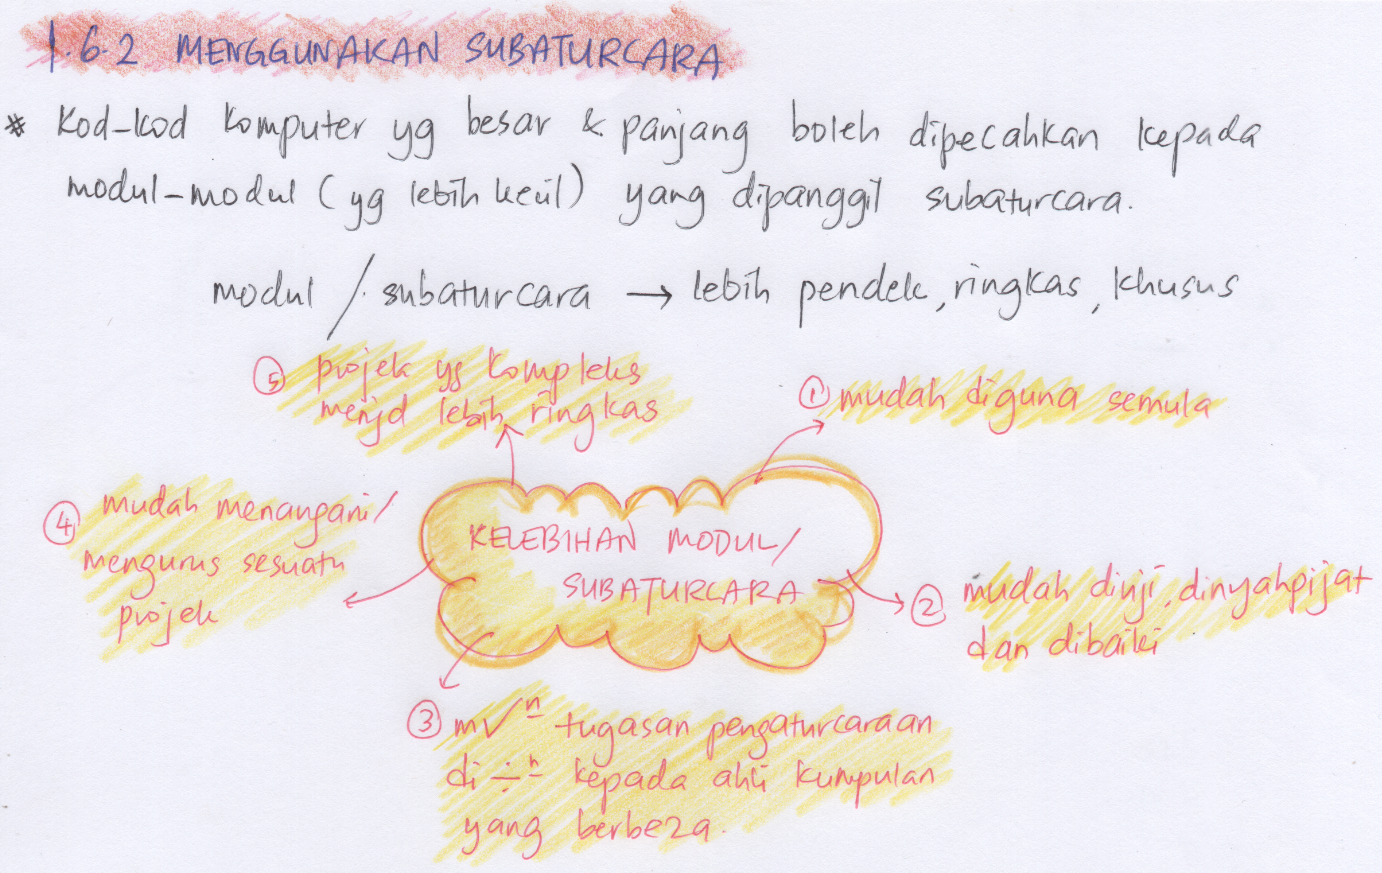 1.6.2 MENGGUNAKAN SUBATURCARA
* Kod-kod komputer yg besar & panjang boleh dipecahkan kepada
modul-modul (yg lebih kecil) yang dipanggil subaturcara.
modul / subaturcara → lebih pendek, ringkas, khusus
⑤ projek yg kompleks
menjd lebih ringkas
① mudah diguna semula
④ mudah menangani/
mengurus sesuatu
projek
KELEBIHAN MODUL/
SUBATURCARA
② mudah diuji, dinyahpijat
dan dibaiki
③ m√ⁿ tugasan pengaturcaraan
di÷ⁿ kepada ahli kumpulan
yang berbeza.